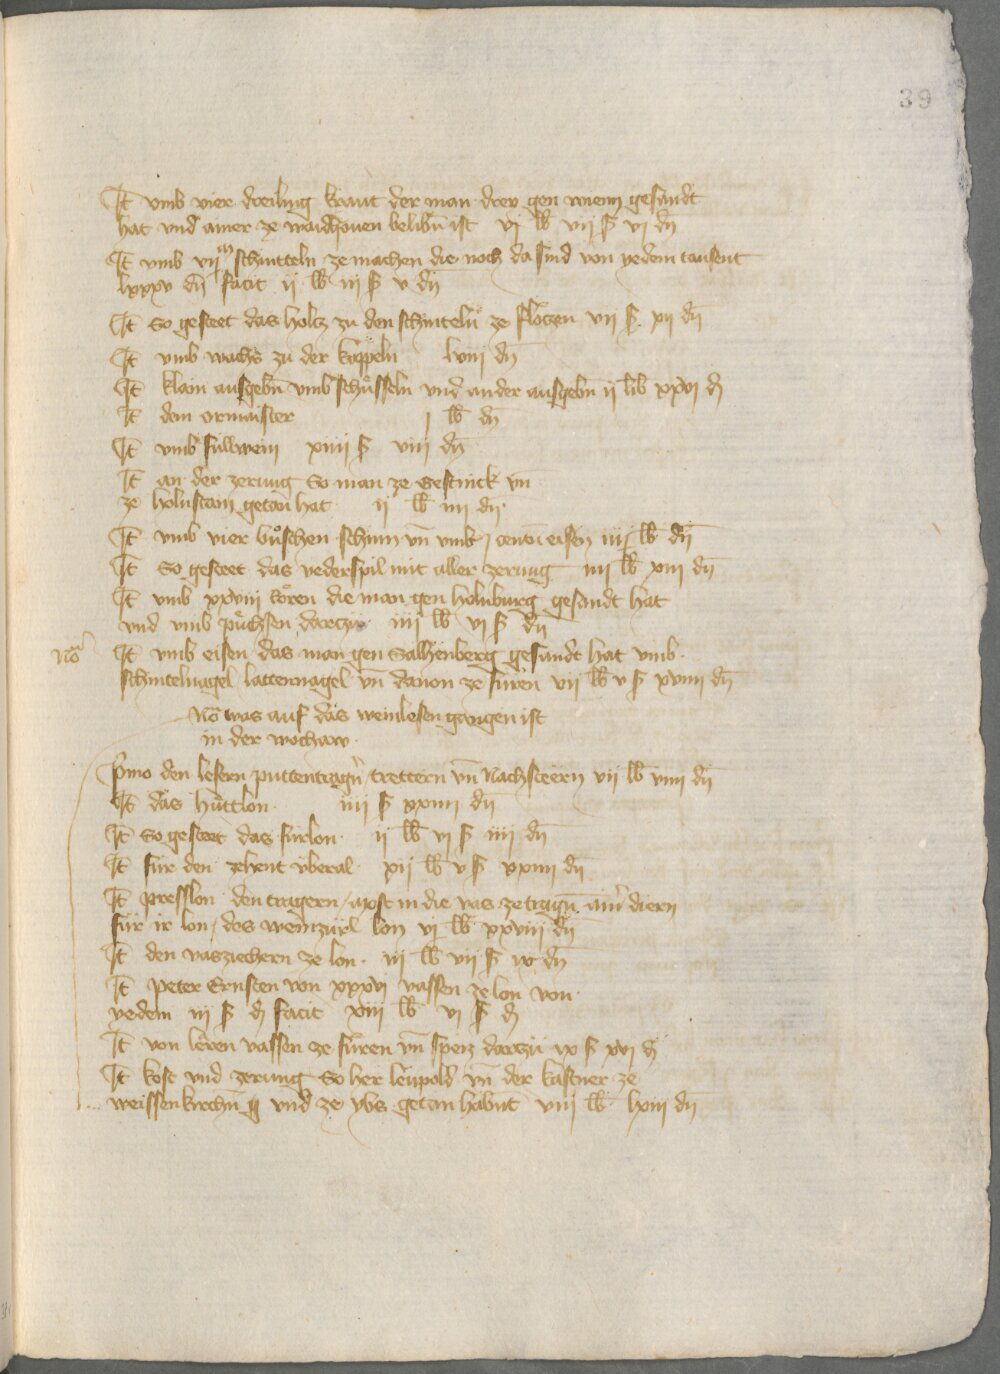 39
It vmb vier dreiling kraut der man drey gen wienn gesandt
hat vnd ainer ze waidhouen belibn̄ ist vj lb vij ß vj dn̄
It vmb vijm schintteln ze machen die noch da sind von yedem tausent
lxxxv dn̄ facit ij lb iij ß v dn̄
It So gesteet das holcz zu den schinteln ze flöczen vij ß xij dn̄
It vmb wachs zu der kappeln lviij dn̄
It klain ausgebn̄ vmb schüsseln vnd ander ausgebn̄ ij lib xxvj d
It dem ormaister j lb dn̄
It vmb fullwein xiiij ß viij dn̄
It an der zerung So man ze Gestnick vn̄
ze holnstain getan hat ij lb iiij dn̄
It vmb vier büschen schinn vn̄ vmb j eisen iiij lb dn̄
It So gesteet das vederspil mit aller zerung iiij lb xiij dn̄
It vmb xxviij tören die man gen holnburg gesandt hat
vnd vmb püchsen darczu iiij lb vj ß dn̄
Nō It vmb eisen das man gen Salhenberg gesandt hat vmb
schintelnagel lattennagel vn̄ dauon ze füren vij lb v ß xviiij dn̄
Nō was auf das weinlesen gangen ist
in der wochaw
p̄mo den lesern puttentragn̄ trettern vn̄ Nachsteern vij lb viiij dn̄
It das hüttlon iiij ß xxiiij dn̄
It So gesteet das furlon ij lb vj ß iiij dn̄
It für den zehent vberal xij lb v ß xxiiij dn̄
It presslon den tragern most in die vas ze tragn̄ ainr̄ diern
für ir lon des weinzürl lon vj lb xxviij dn̄
It den vasziechern ze lon iij lb vij ß ix dn̄
It peter Ernsten von xxxvj vassen ze lon von
yedem iij ß d facit xiij lb vj ß d
It von leren vassen ze füren vn̄ speis darczu ix ß xvj d
It kost vnd zerung So her leupold vn̄ der kastner ze
weissenkirchn̄ vnd ze ybs getan habnt viij lb lxiij dn̄